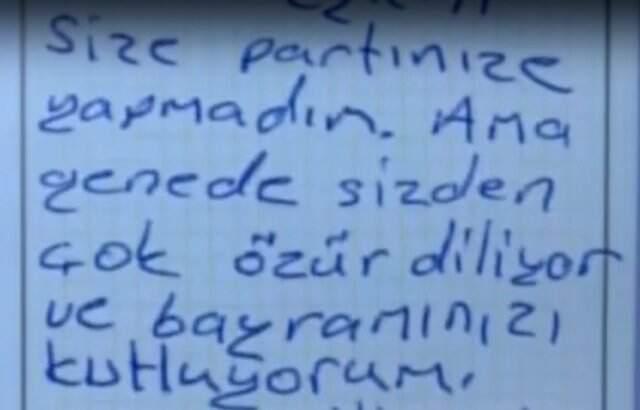 size partinize
yapmadım. Ama
genede sizden
çok özür diliyor
ve bayramınızı
kutluyorum.